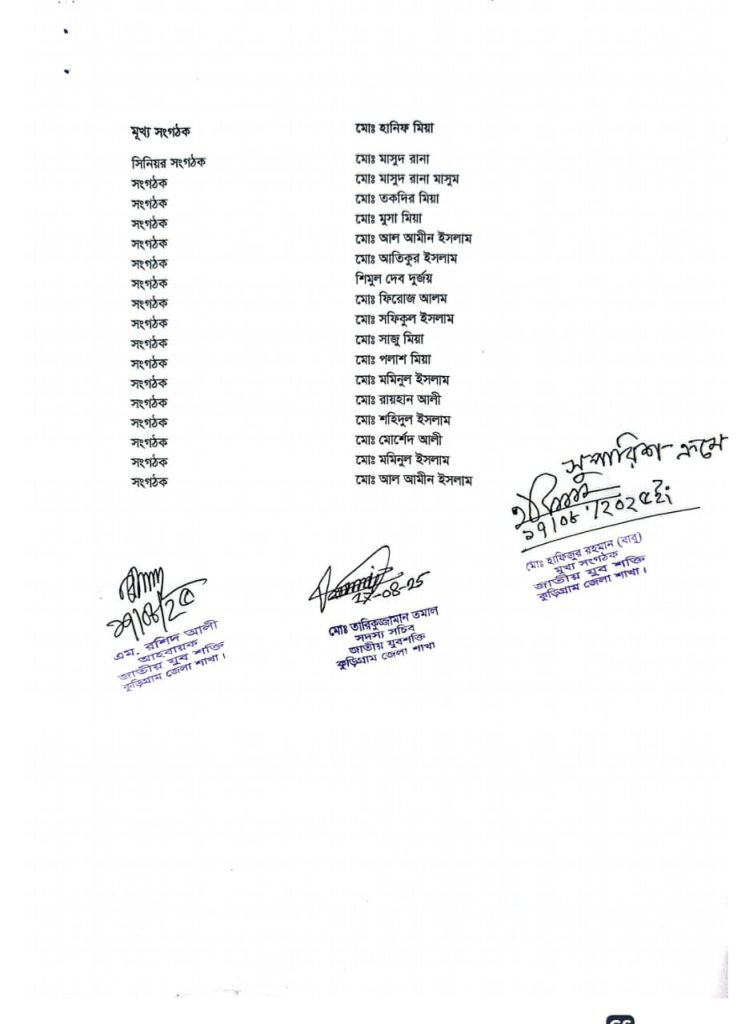 মূখ্য সংগঠক মোঃ হানিফ মিয়া
সিনিয়র সংগঠক মোঃ মাসুদ রানা
সংগঠক মোঃ মাসুদ রানা মাসুম
সংগঠক মোঃ তকদির মিয়া
সংগঠক মোঃ মুসা মিয়া
সংগঠক মোঃ আল আমীন ইসলাম
সংগঠক মোঃ আতিকুর ইসলাম
সংগঠক শিমুল দেব দুর্জয়
সংগঠক মোঃ ফিরোজ আলম
সংগঠক মোঃ সফিকুল ইসলাম
সংগঠক মোঃ সাজু মিয়া
সংগঠক মোঃ পলাশ মিয়া
সংগঠক মোঃ মমিনুল ইসলাম
সংগঠক মোঃ রায়হান আলী
সংগঠক মোঃ শহিদুল ইসলাম
সংগঠক মোঃ মোর্শেদ আলী
সংগঠক মোঃ মমিনুল ইসলাম
সংগঠক মোঃ আল আমীন ইসলাম
সুপারিশ ক্রমে
১৭/০৮/২০২৫ ইং
মোঃ হাফিজুর রহমান (বাবু)
মূখ্য সংগঠক
জাতীয় যুব শক্তি
কুড়িগ্রাম জেলা শাখা।
১৭/০৮/২৫
এম. রশিদ আলী
আহবায়ক
জাতীয় যুব শক্তি
কুড়িগ্রাম জেলা শাখা।
17-08-25
মোঃ তারিকুজ্জামান তমাল
সদস্য সচিব
জাতীয় যুবশক্তি
কুড়িগ্রাম জেলা শাখা